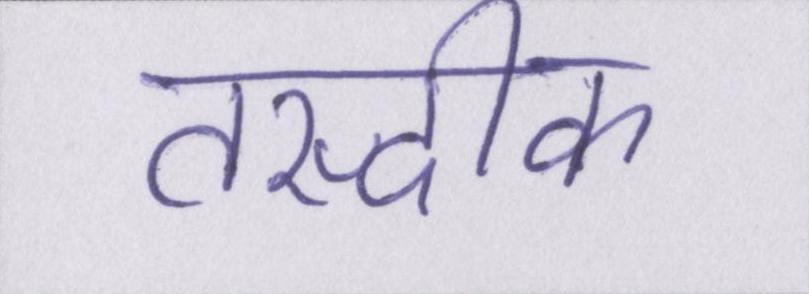 तस्दीक